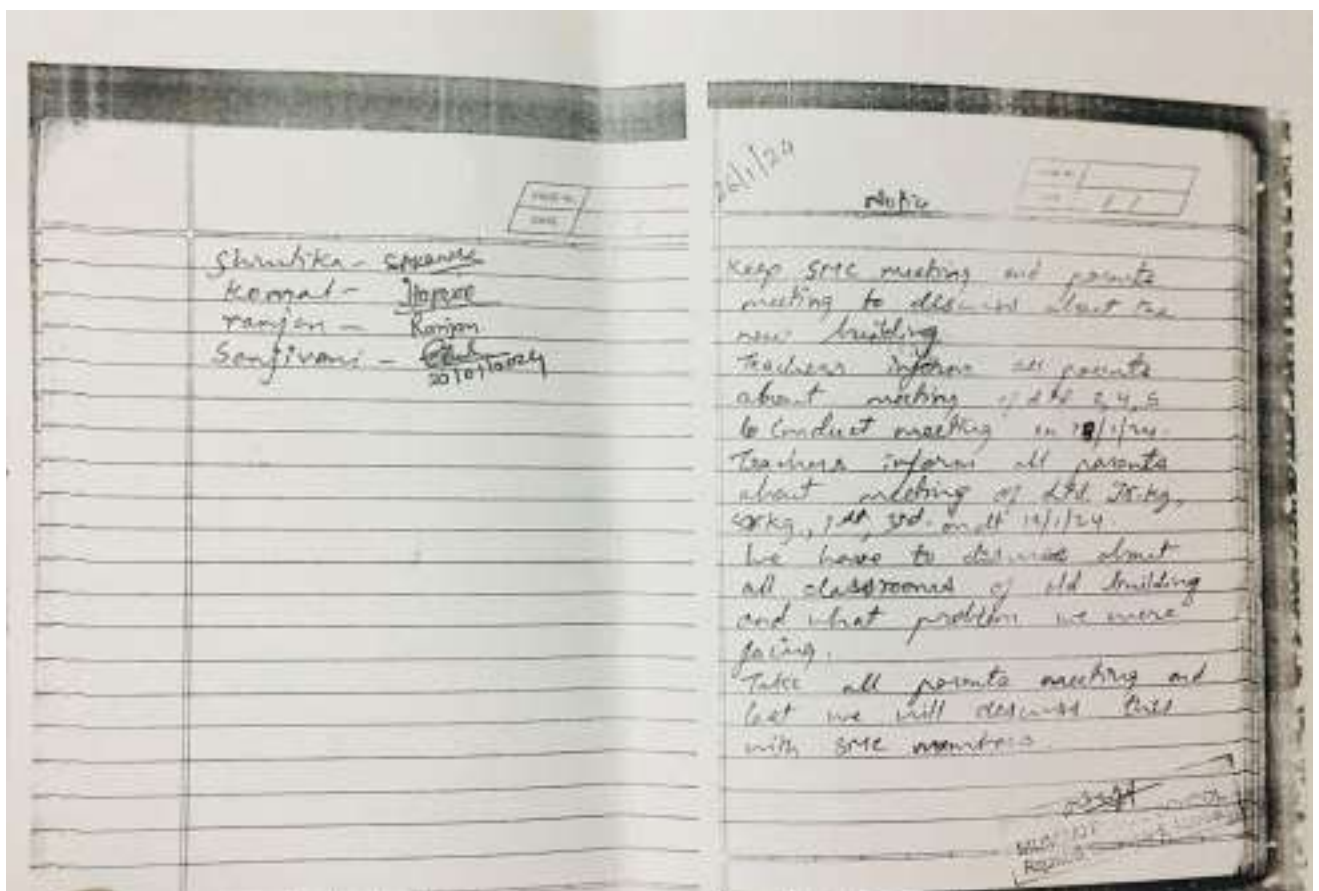 Shrutika -
Komal -
ranjan - Ranjan
Sanjivani -
20/01/2024
26/1/24
Notic
Keep SMC meeting and parents
meeting to descuss about the
new building
Teachers inform all parents
about meeting of std 2,4,5
to Conduct meeting on /1/24.
Teachers inform all parents
about meeting of std. Jr.kg,
Sr.kg, 1st, 3rd. on dt 19/1/24
we have to descuss about
all classrooms of old building
and what problem we were
facing.
Take all parents meeting and
last we will descuss this
with SMC members.